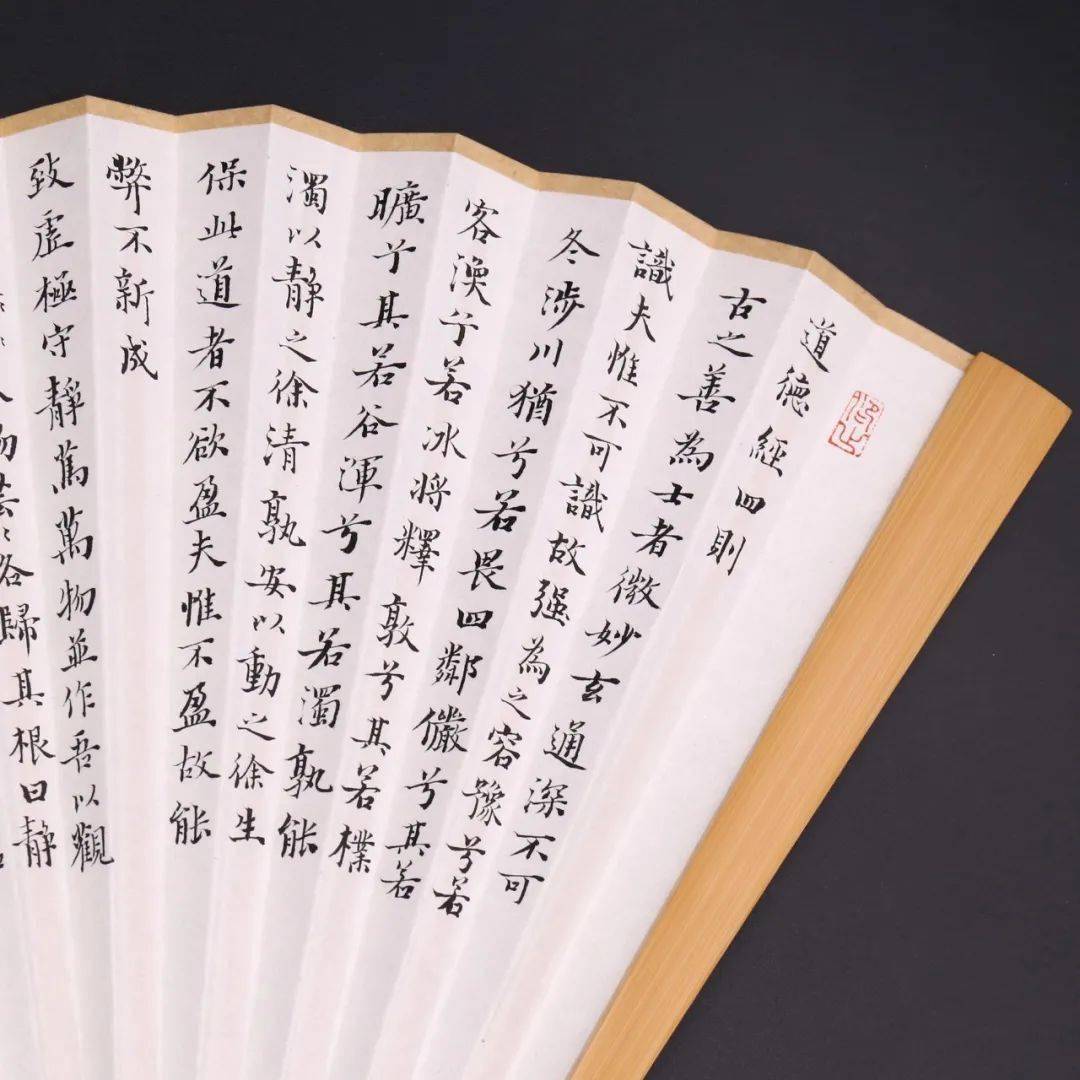 道德經四則
古之善為士者微妙玄通深不可
識夫惟不可識故强為之容豫兮若
冬涉川猶兮若畏四鄰儼兮其若
客渙兮若冰將釋敦兮其若樸
曠兮其若谷渾兮其若濁孰能
濁以靜之徐清孰安以動之徐生
保此道者不欲盈夫惟不盈故能
弊不新成
致虛極守靜篤萬物並作吾以觀
物芸〻各歸其根曰靜